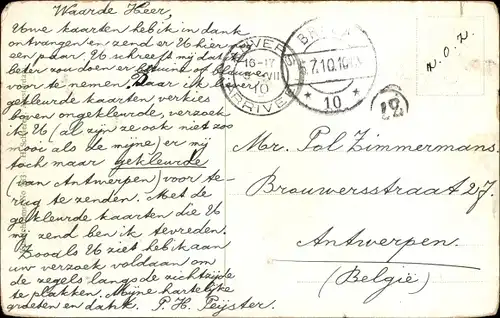 Waarde Heer,
Uwe kaarten heb ik in dank
ontvangen en zend er U hier mij
een paar. U schreeft mij dat 't
beter zou doen er bruine of blauwe
voor te nemen. Daar ik liever
gekleurde kaarten verkies
boven ongekleurde, verzoek
ik U (al zijn ze ook niet zoo
mooi als de mijne) er mij
toch maar gekleurde
(van Antwerpen) voor te-
rug te zenden. Met de
gekleurde kaarten die U
mij zend ben ik tevreden.
Zooals U ziet heb ik aan
uw verzoek voldaan om
de zegels langs de zichtzijde
te plakken. Mijne hartelijke
groeten en dank. P. H. Peijster.
ANVERS
16-17
VII
10
BRIVE
BREDA
7.10.10
* 10 *
Mr. Pol Zimmermans.
Brouwersstraat 27.
Antwerpen
(België)